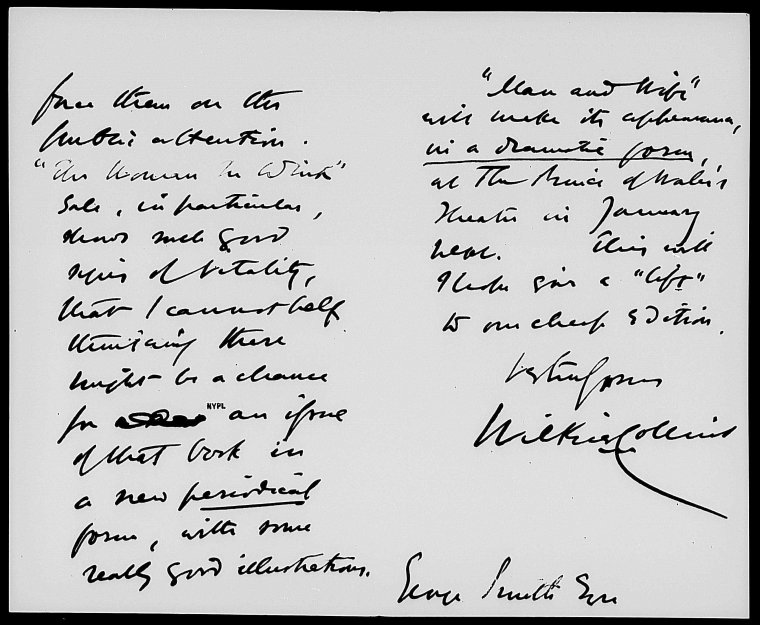 force them on the
public attention.
"The Woman In White"
Sale, in particular,
shows such good
signs of vitality,
that I cannot help
thinking there
might be a chance
for NYPL an issue
of that book in
a new periodical
form, with some
really good illustrations.
"Man and Wife"
will make its appearance,
in a dramatic form,
at The Prince of Wales's
Theatre in January
next. This will
I hope give a "lift"
to our cheap Edition.
Vy truly yours
Wilkie Collins
George Smith Esqre